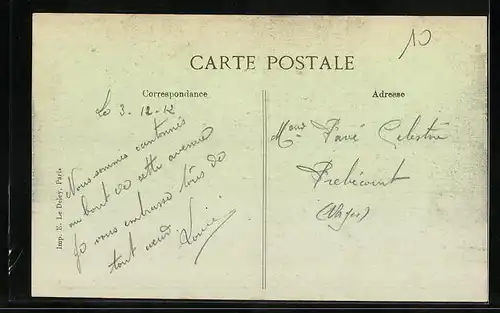 10
CARTE POSTALE
Correspondance
Adresse
Le 3-12-12
Nous sommes cantonnés
au bout de cette avenue
Je vous embrasse tous de
tout cœur. Louis
Celestin
(Vosges)
Imp. E. Le Deley, Paris